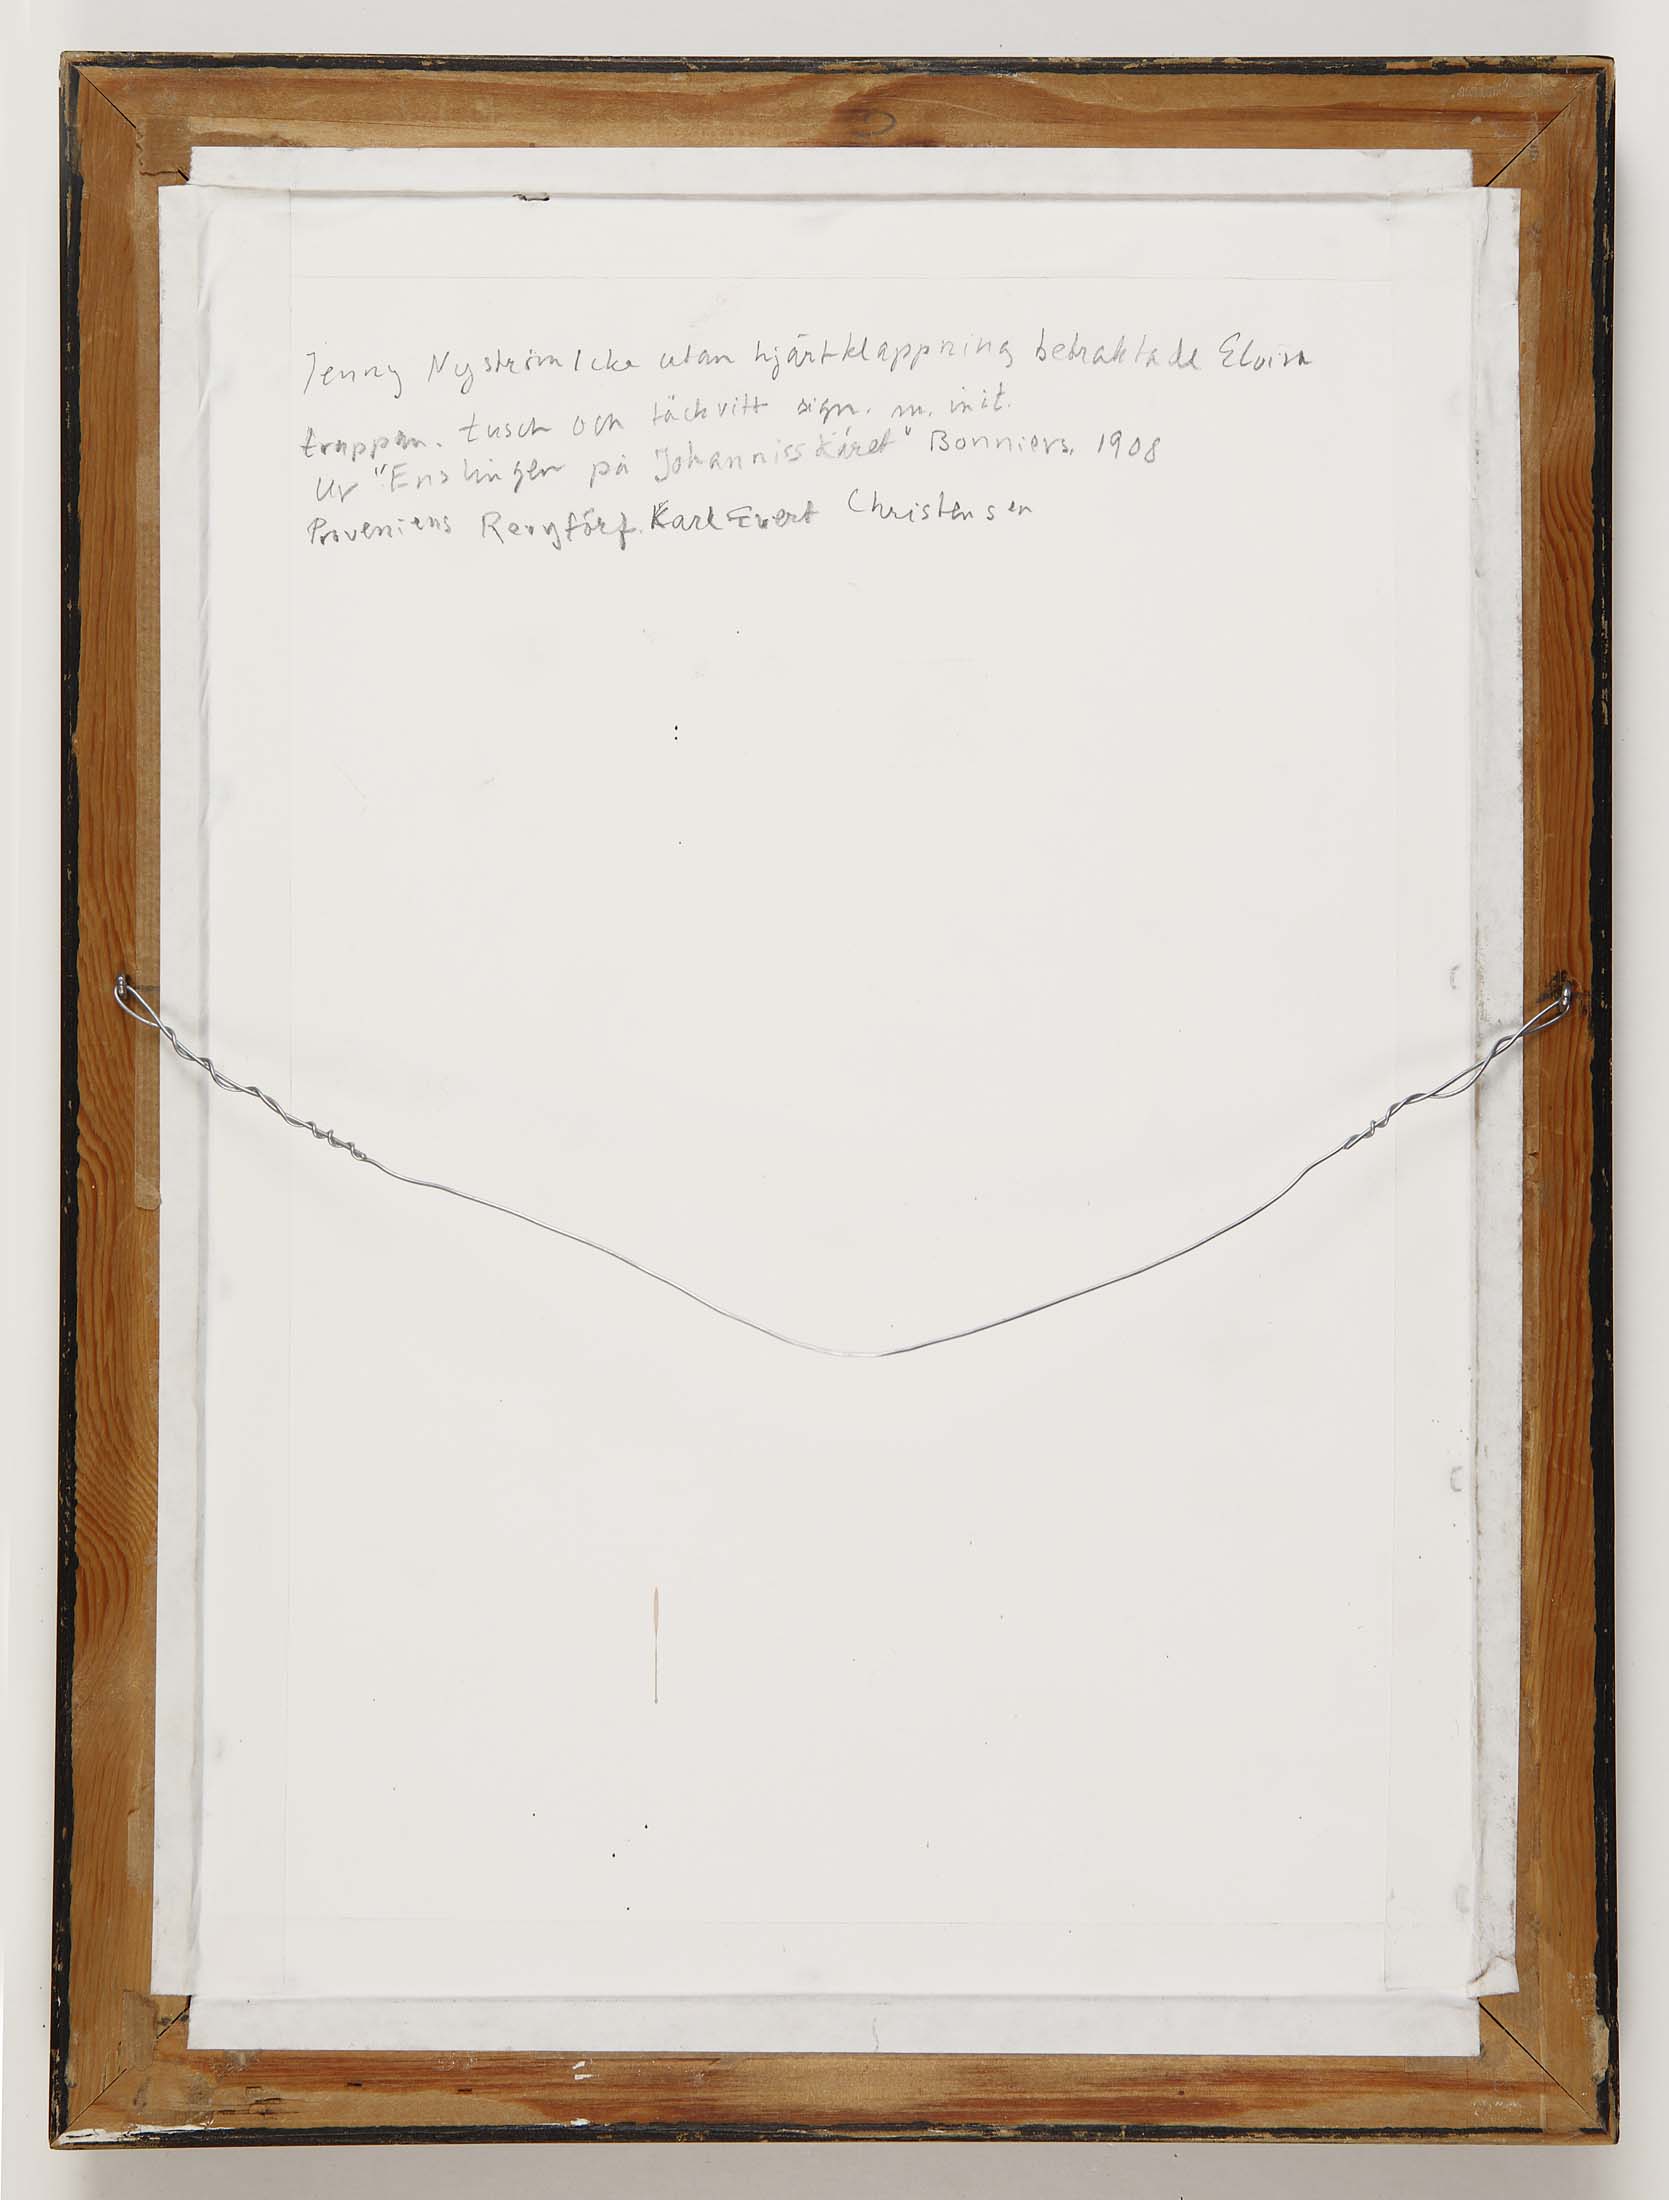 Jenny Nyström Icke utan hjärtklappning betraktade Elvira
trappan. tusch och täckvitt sign. m. init.
Ur "Enslingen på Johannisskäret" Bonniers. 1908
Proveniens Revyförf. Karl Ewert Christensen